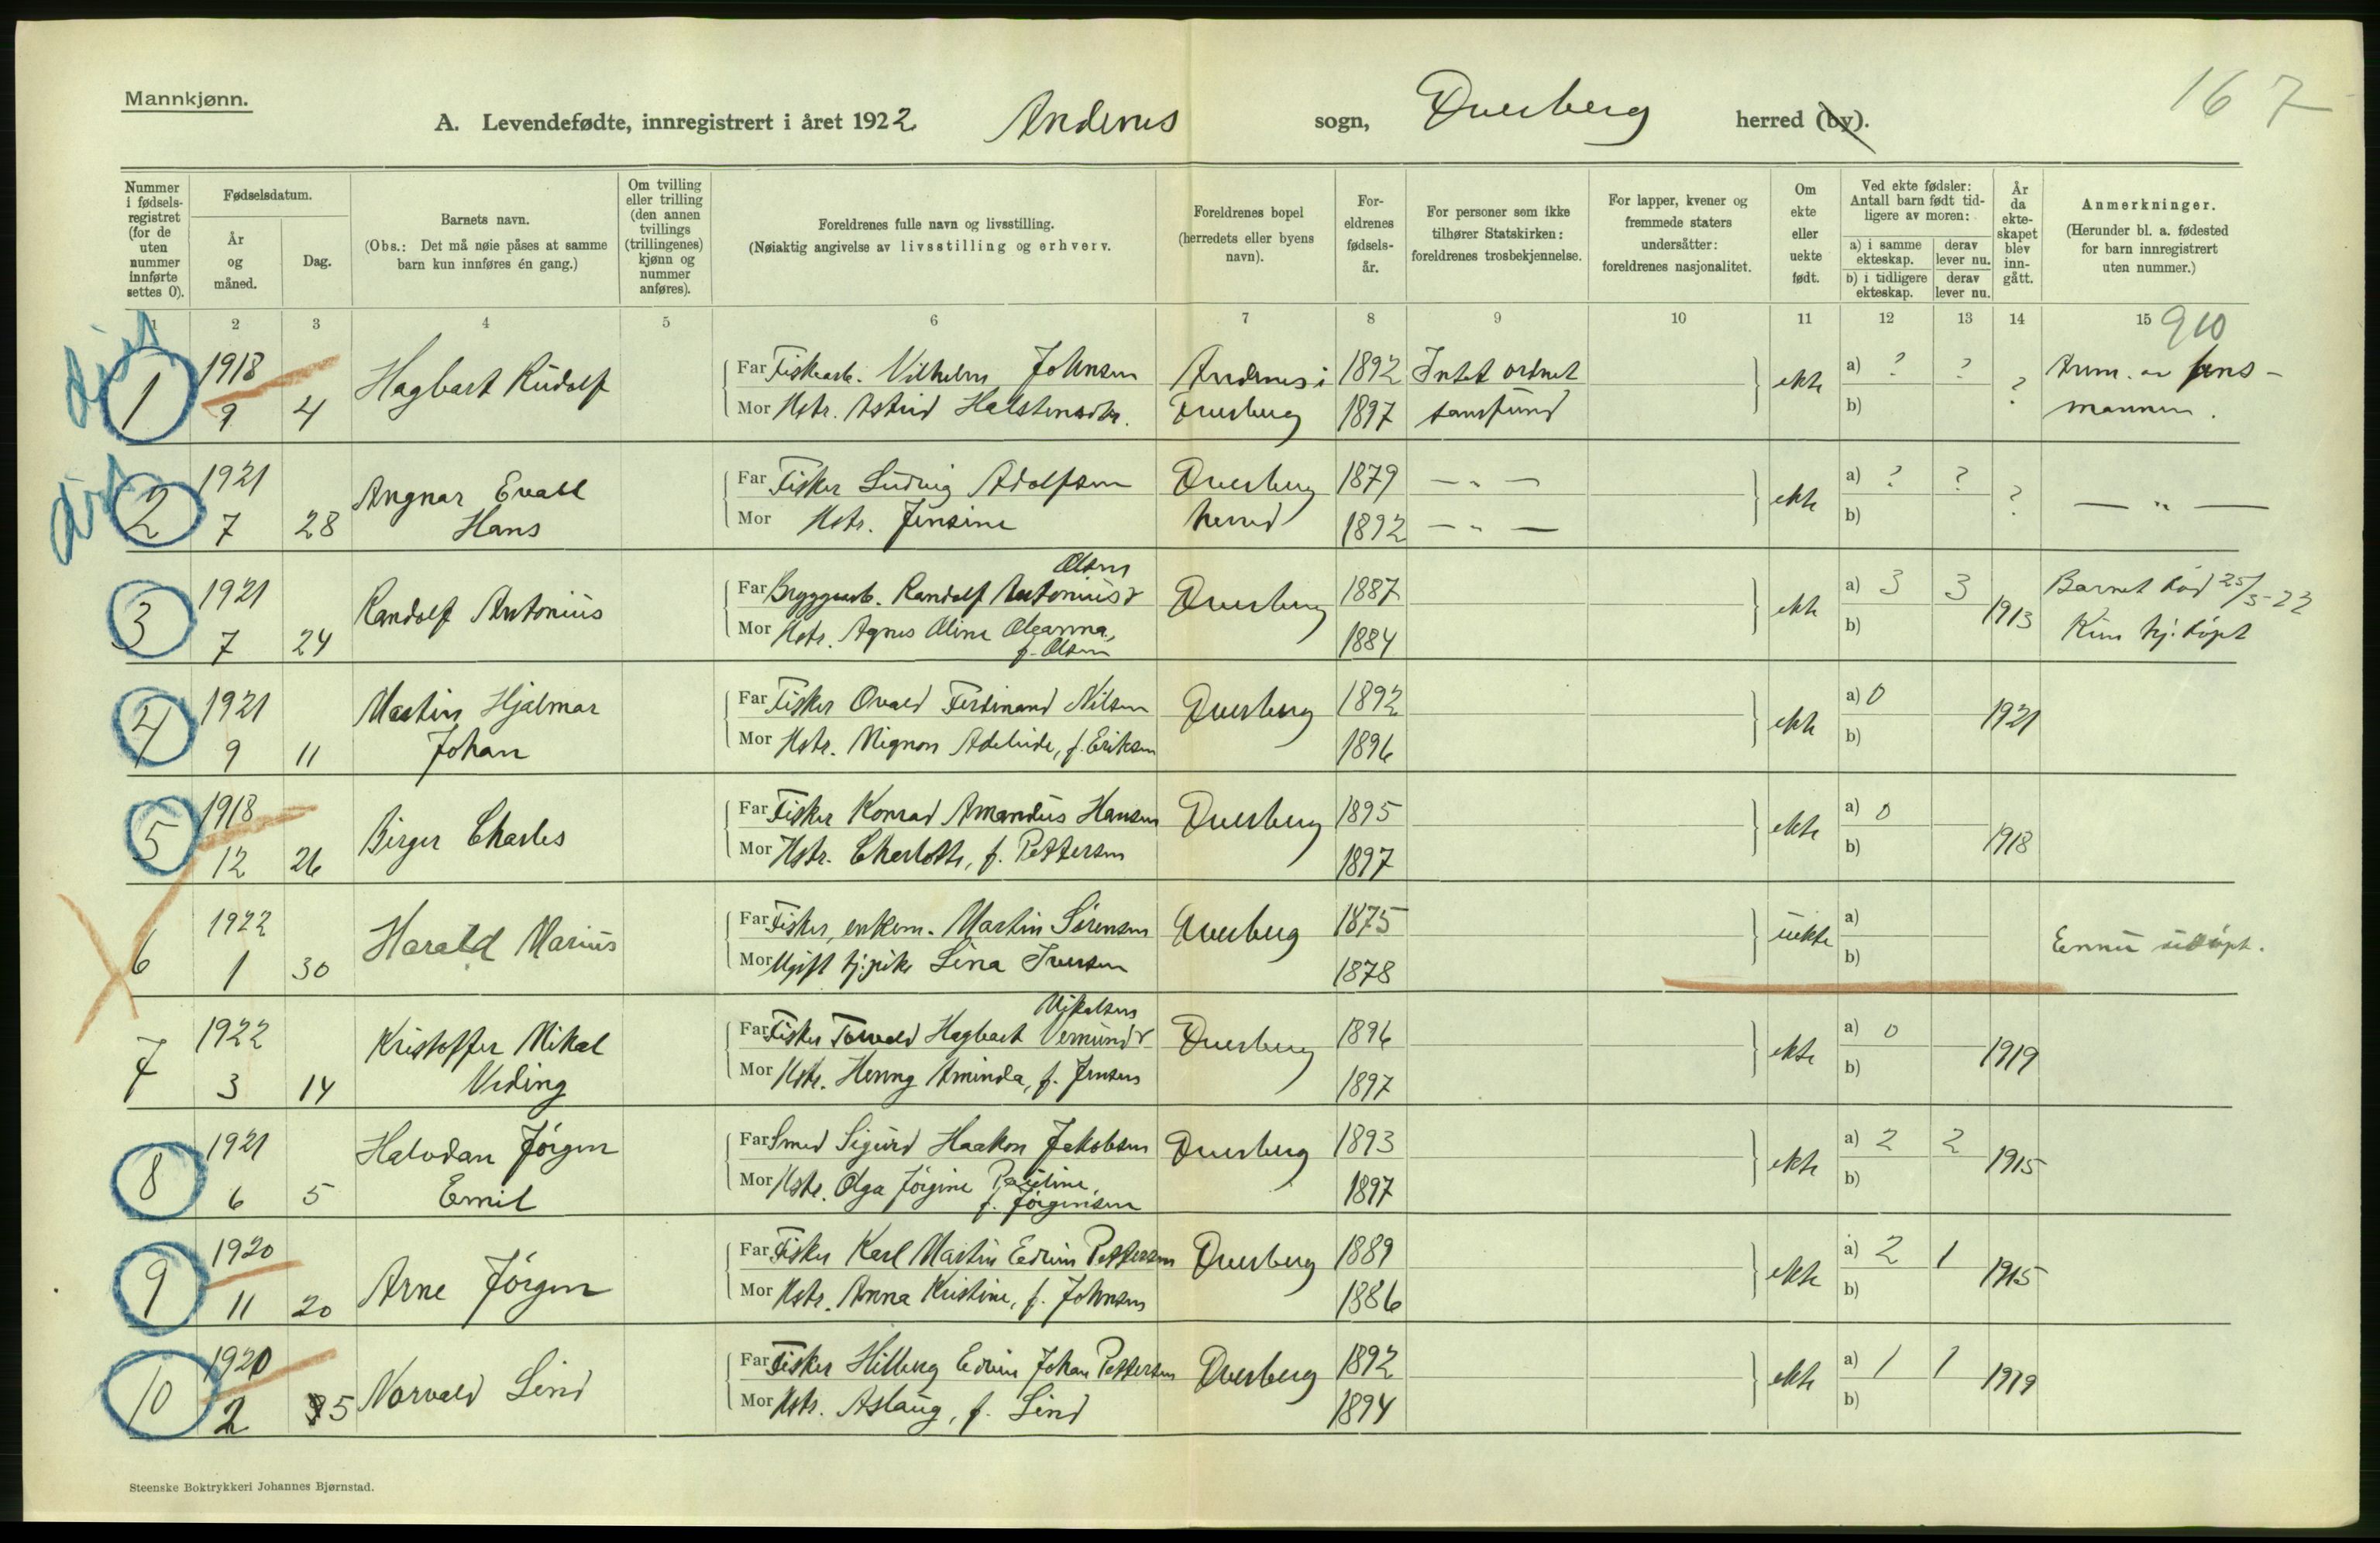 Mannkjønn.
167
A. Levendefødte, innregistrert i året 1922 Andenes sogn, Dverberg herred (by).
Nummer i fødsels-registret (for de uten nummer innførte settes 0).
Fødselsdatum.
År og måned.
Dag.
Barnets navn.
(Obs.: Det må nøie påses at samme barn kun innføres én gang.)
Om tvilling eller trilling (den annen tvillings (trillingenes) kjønn og nummer anføres).
Foreldrenes fulle navn og livsstilling.
(Nøiaktig angivelse av livsstilling og erhverv.
Foreldrenes bopel (herredets eller byens navn).
For-eldrenes fødsels-år.
For personer som ikke tilhører Statskirken: foreldrenes trosbekjennelse.
For lapper, kvener og fremmede staters undersåtter: foreldrenes nasjonalitet.
Om ekte eller uekte født.
Ved ekte fødsler: Antall barn født tid-ligere av moren:
a) i samme ekteskap.
derav lever nu.
b) i tidligere ekteskap.
derav lever nu.
År da ekte-skapet blev inn-gått.
Anmerkninger.
(Herunder bl. a. fødested for barn innregistrert uten nummer.)
1 2 3 4 5 6 7 8 9 10 11 12 13 14 15
910
1 1918 9 4 Hagbart Rudolf
Far Fiskearb. Vilhelm Johnsen Andenes i 1892 Intet ordnet
Mor Hstr. Astrid Halstensdtr. Dverberg 1897 samfund
ekte a) ? ? ? b)
Anm. av lens-
mannen.
2 1921 7 28 Angnar Evald
Hans
Far Fisker Ludvig Adolfsen Dverberg 1879 — " —
Mor Hstr. Jensine herred 1892 — " —
ekte a) ? ? ? b)
— " —
3 1921 7 24 Randolf Antonius
Olsen
Far Bryggearb. Randolf Antonius Dverberg 1887
Mor Hstr. Agnes Oline Olganna, 1884
f. Olsen
ekte a) 3 3 b) 1913
Barnet død 25/5-22
Kun hj. døpt
4 1921 9 11 Martin Hjalmar
Johan
Far Fisker Ovald Ferdinand Nilsen Dverberg 1892
Mor Hstr. Mignon Adelaide, f. Eriksen 1896
ekte a) 0 b) 1921
5 1918 12 26 Birger Charles
Far Fisker Konrad Amandus Hansen Dverberg 1895
Mor Hstr. Charlotte, f. Pettersen 1897
ekte a) 0 b) 1918
6 1922 1 30 Harald Marius
Far Fisker, enkem. Martin Sørensen Dverberg 1875
Mor Ugift tj.pike Lina Iversen 1878
uekte a) b)
Ennu udøpt.
7 1922 3 14 Kristoffer Mikal
Viding
Far Fisker Torvald Hagbart Vermund Dverberg 1896
Mor Hstr. Henny Aminda, f. Jensen 1897
ekte a) 0 b) 1919
8 1921 6 5 Halvdan Jørgen
Emil
Far Smed Sigurd Haakon Jakobsen Dverberg 1893
Mor Hstr. Olga Jørgine Pauline, 1897
f. Jørgensen
ekte a) 2 2 b) 1915
9 1920 11 20 Arne Jørgen
Far Fisker Karl Martin Edvin Pettersen Dverberg 1889
Mor Hstr. Anna Kristine, f. Johnsen 1886
ekte a) 2 1 b) 1915
10 1920 2 5 Norvald Lind
Far Fisker Hilberg Edvin Johan Pettersen Dverberg 1892
Mor Hstr. Aslaug, f. Lind 1894
ekte a) 1 1 b) 1919
Steenske Boktrykkeri Johannes Bjørnstad.